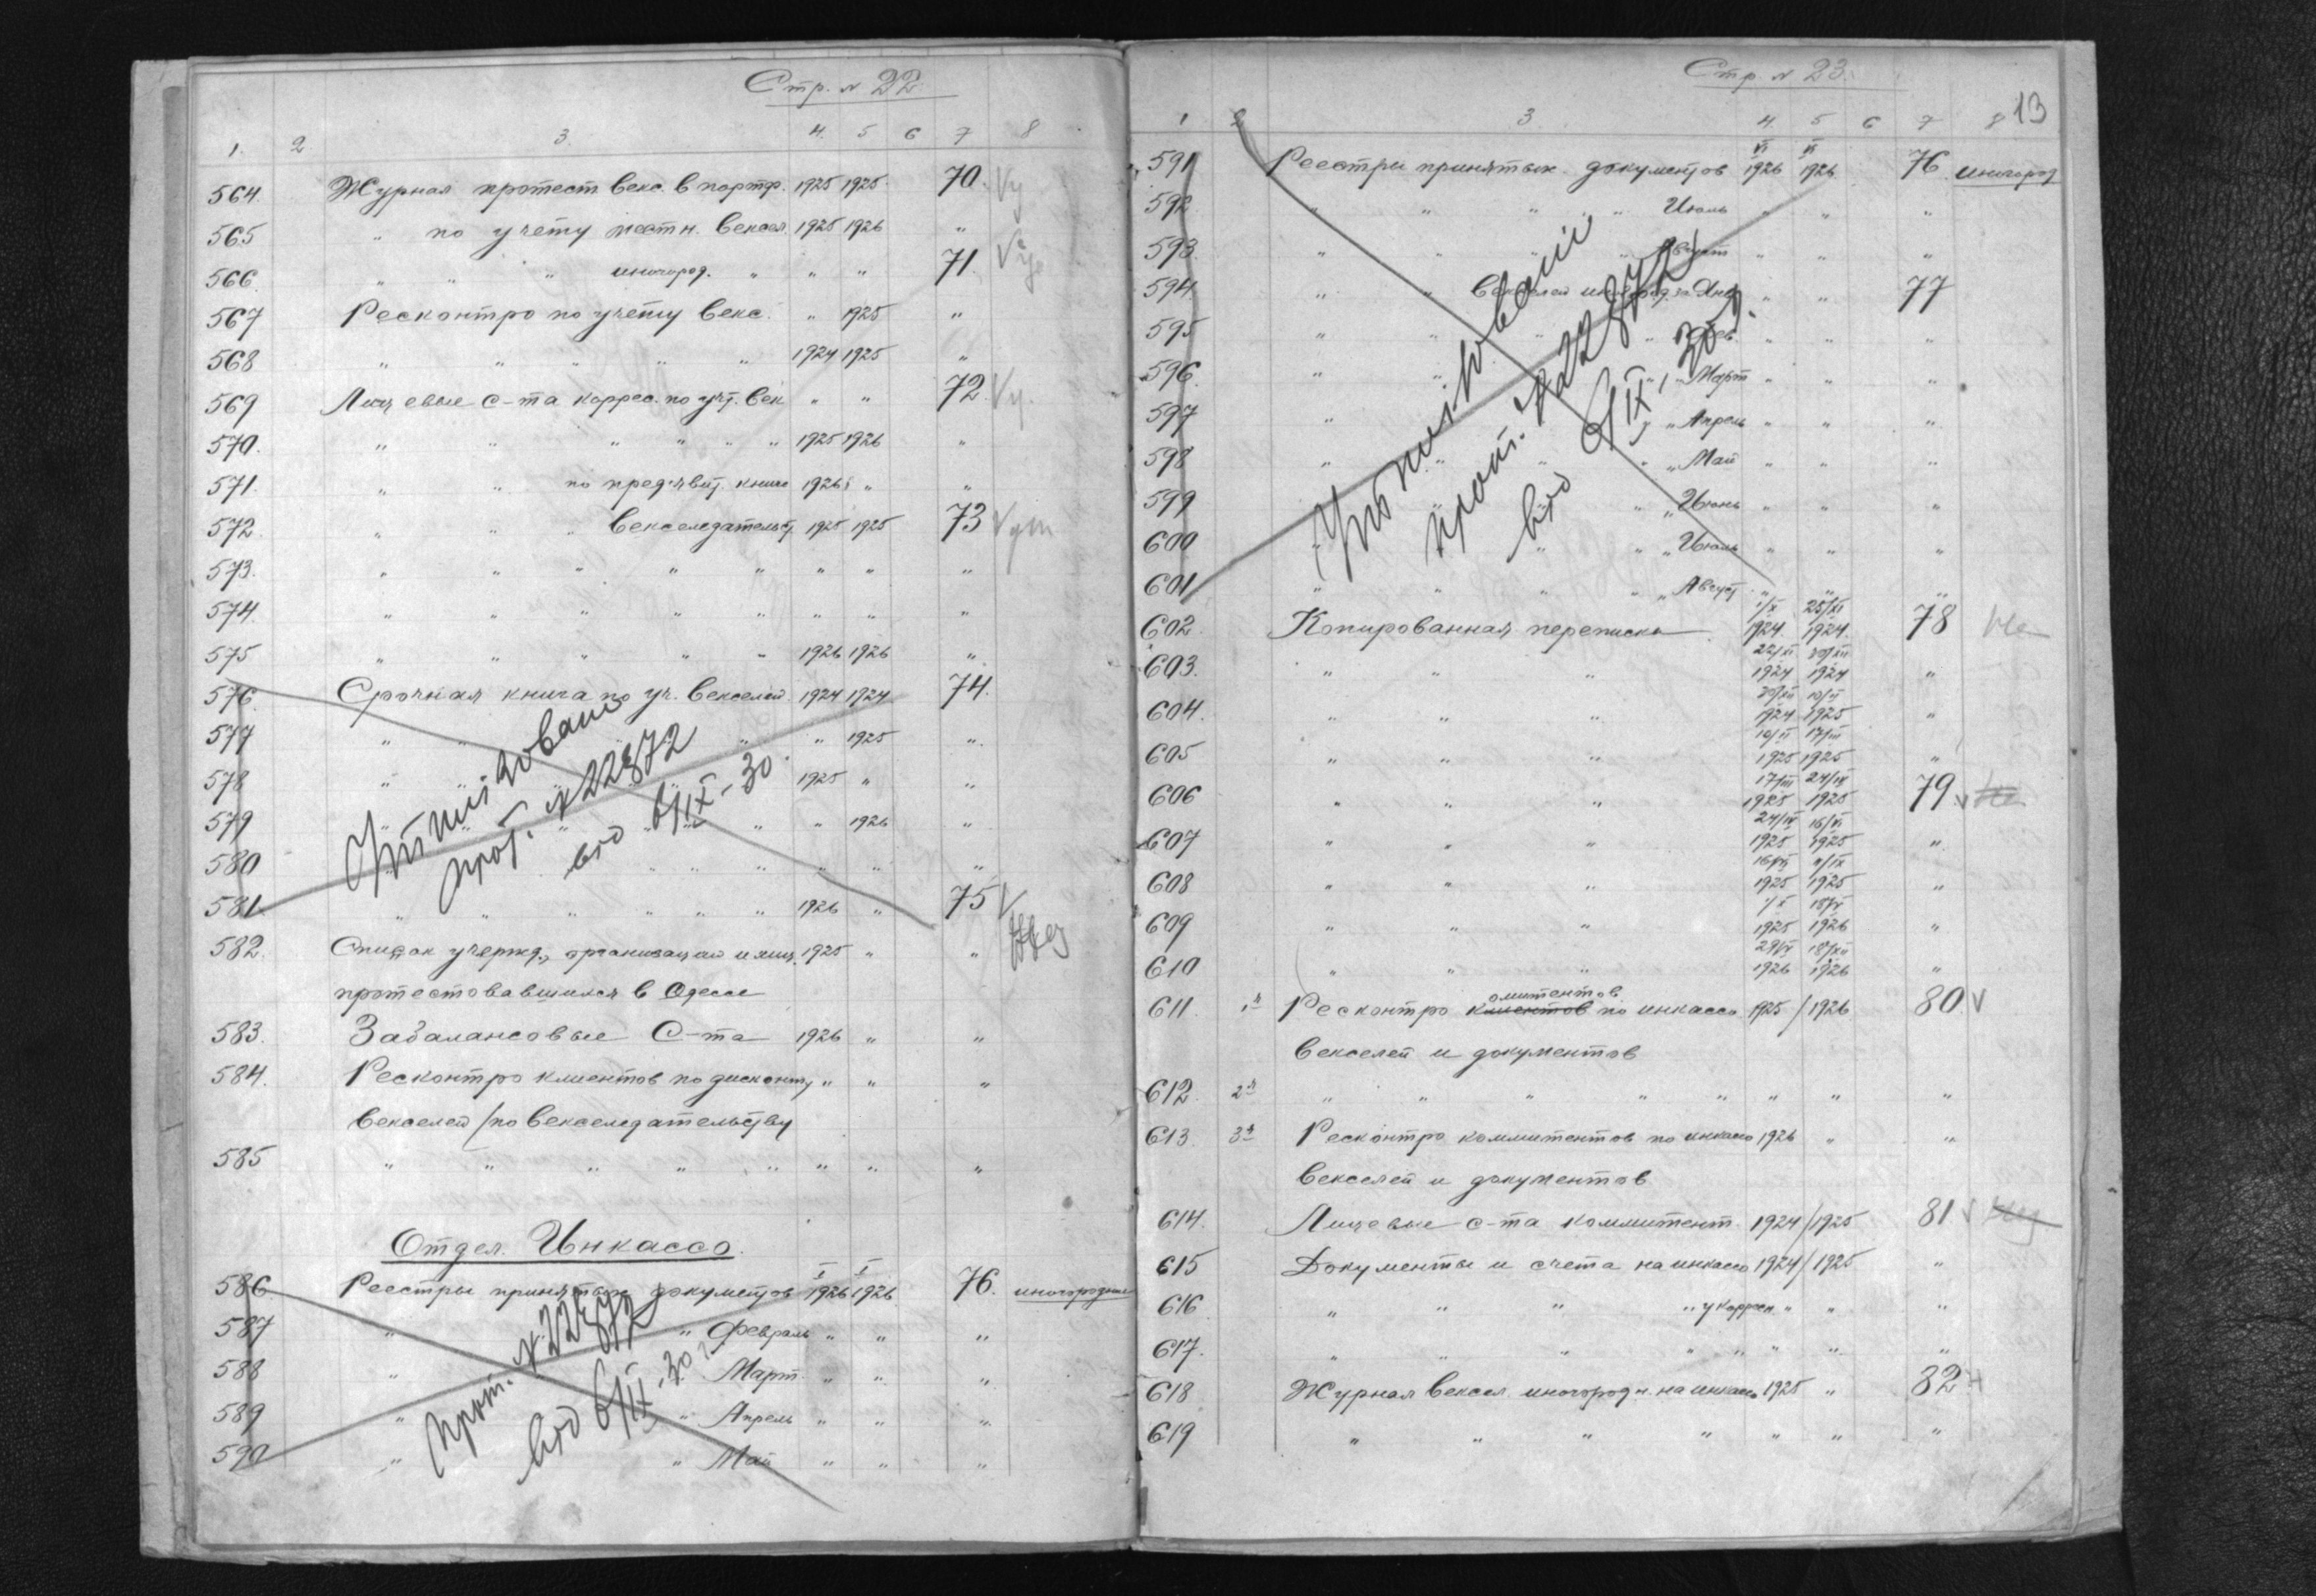 Стр. № 22
1. 2. 3. 4. 5 6 7 8
564. Журнал протест векс. в портф. 1925 1925. 70.
565 " по учету местн. вексел. 1925 1926 "
566. " " " иногород. " " " 71.
567 Ресконтро по учету векс. " 1925 "
568 " " " " " 1924 1925 "
569 Лицевые с-та коррес. по учт. век " " 72.
570. " " " " " " 1925 1926 "
571. " " по предъявит. книге 1926 " "
572. " " " векселедательст 1925 1925 73
573. " " " " " " " "
574. " " " " " " " "
575 " " " " " 1926 1926 "
576. Срочная книга по уч. векселей 1924 1924 74.
577 " " " " 1925 "
578 " " " 1925 " "
579 " " " " " " 1926 "
580 " " " " " " "
581. " " " " " " 1926 " 75 V
Утилизовано
прот. № 22872
від 6/IX-30.
582. Список учережд., организаций и лиц. 1925 " "
протестовавшихся в Одессе
583. Забалансовые С-та 1926 " "
584. Ресконтро клиентов по дисконту " " "
векселей /по векселедательству
585 " " " " " " " " "
Отдел. Инкассо.
586 Реестры принятых документов I 1926 I 1926 76. иногородние
587 " " Февраль " " "
588 " Март. " " "
589 " " Апрель " " "
590 " " Май " " "
прот. № 22872
від 6/IX-30
Стр № 23.
13
1 2 3 4. 5 6 7 8
591 Реестры принятых документов VI 1926 VI 1926 76 иногород
592 " " " " Июль " " "
593. " " " " Август " " "
594. " " Векселей иногород за Янв. " " 77
595 " " " " " "
596. " " " Март " " "
597 " " Апрель " " "
598 " " " " " Май " " "
599 " " " Июнь " " "
600 " " " " Июль " " "
601 " " " " " Август " " "
Утилізовани
прот. № 22872
від 6/IX-30 р.
602. Копированная переписка 1/X 1924. 25/XI 1924. 78
603. " " " 1924 1924 "
604. " " " 1924 1925 "
605 " " " 1925 1925 "
606 " " " 17/III 1925 24/IV 1925 79
607 " " " 24/IV 1925 16/VI 1925 "
608 " " " 1925 1925 "
609 " " " 1925 1926 "
610 " " " 1926 1926 "
611. 1я Ресконтро клиентов омитентов по инкассо 1925 / 1926 80. V
векселей и документов
612. 2я " " " " " " " "
613. 3я Ресконтро коммитентов по инкассо 1926 " "
векселей и документов
614. Лицевые с-та коммитент. 1924 / 1925 81 V
615 Документы и счета на инкассо 1924 / 1925 "
616 " " " " у корресп. " " "
617. " " " " " " " "
618 Журнал вексел. иногородн. на инкассо 1925 " 82
619 " " " " " " "